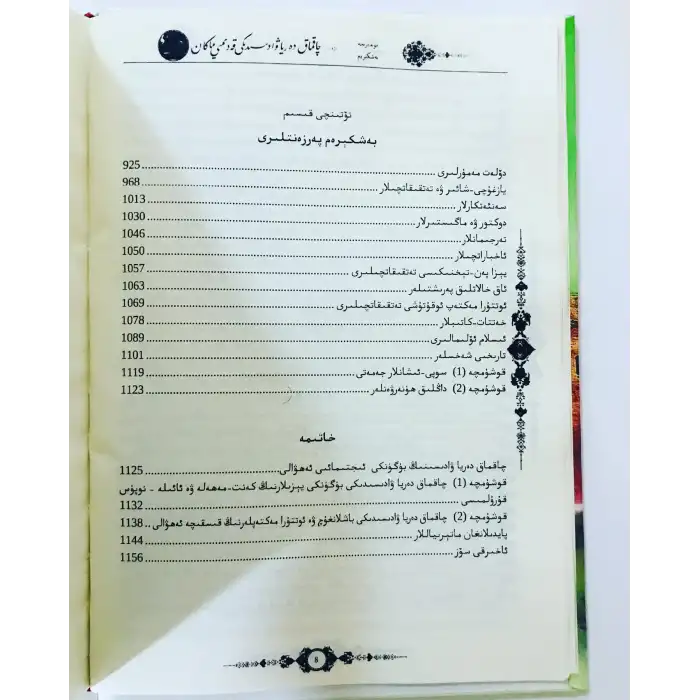 چاقماق دەريا ۋادىسىدىكى قەدىمىي ماكان
مۇندەرىجە
بەشكېرەم
تۆتىنچى قىسىم
بەشكېرەم پەرزەنتلىرى
دۆلەت مەمۇرلىرى 925
يازغۇچى-شائىر ۋە تەتقىقاتچىلار 968
سەنئەتكارلار 1013
دوكتور ۋە ماگىستىرلار 1030
تەرجىمانلار 1046
ئاخباراتچىلار 1050
يېزا پەن-تېخنىكىسى تەتقىقاتچىلىرى 1057
ئاق خالاتلىق پەرىشتىلەر 1063
ئوتتۇرا مەكتەپ ئوقۇتۇشى تەتقىقاتچىلىرى 1069
خەتتات-كاتىبلار 1078
ئىسلام ئۆلىمالىرى 1089
تارىخىي شەخسلەر 1101
قوشۇمچە (1) سوپى-ئىشانلار جەمەتى 1119
قوشۇمچە (2) داڭلىق ھۈنەرۋەنلەر 1123
خاتىمە
چاقماق دەريا ۋادىسىنىڭ بۈگۈنكى ئىجتىمائىي ئەھۋالى 1125
قوشۇمچە (1) چاقماق دەريا ۋادىسىدىكى بۈگۈنكى يېزىلارنىڭ كەنت-مەھەللە ۋە ئائىلە - نوپۇس
قۇرۇلمىسى 1132
قوشۇمچە (2) چاقماق دەريا ۋادىسىدىكى باشلانغۇچ ۋە ئوتتۇرا مەكتەپلەرنىڭ قىسقىچە ئەھۋالى 1138
پايدىلانغان ماتېرىياللار 1144
ئاخىرقى سۆز 1156
8